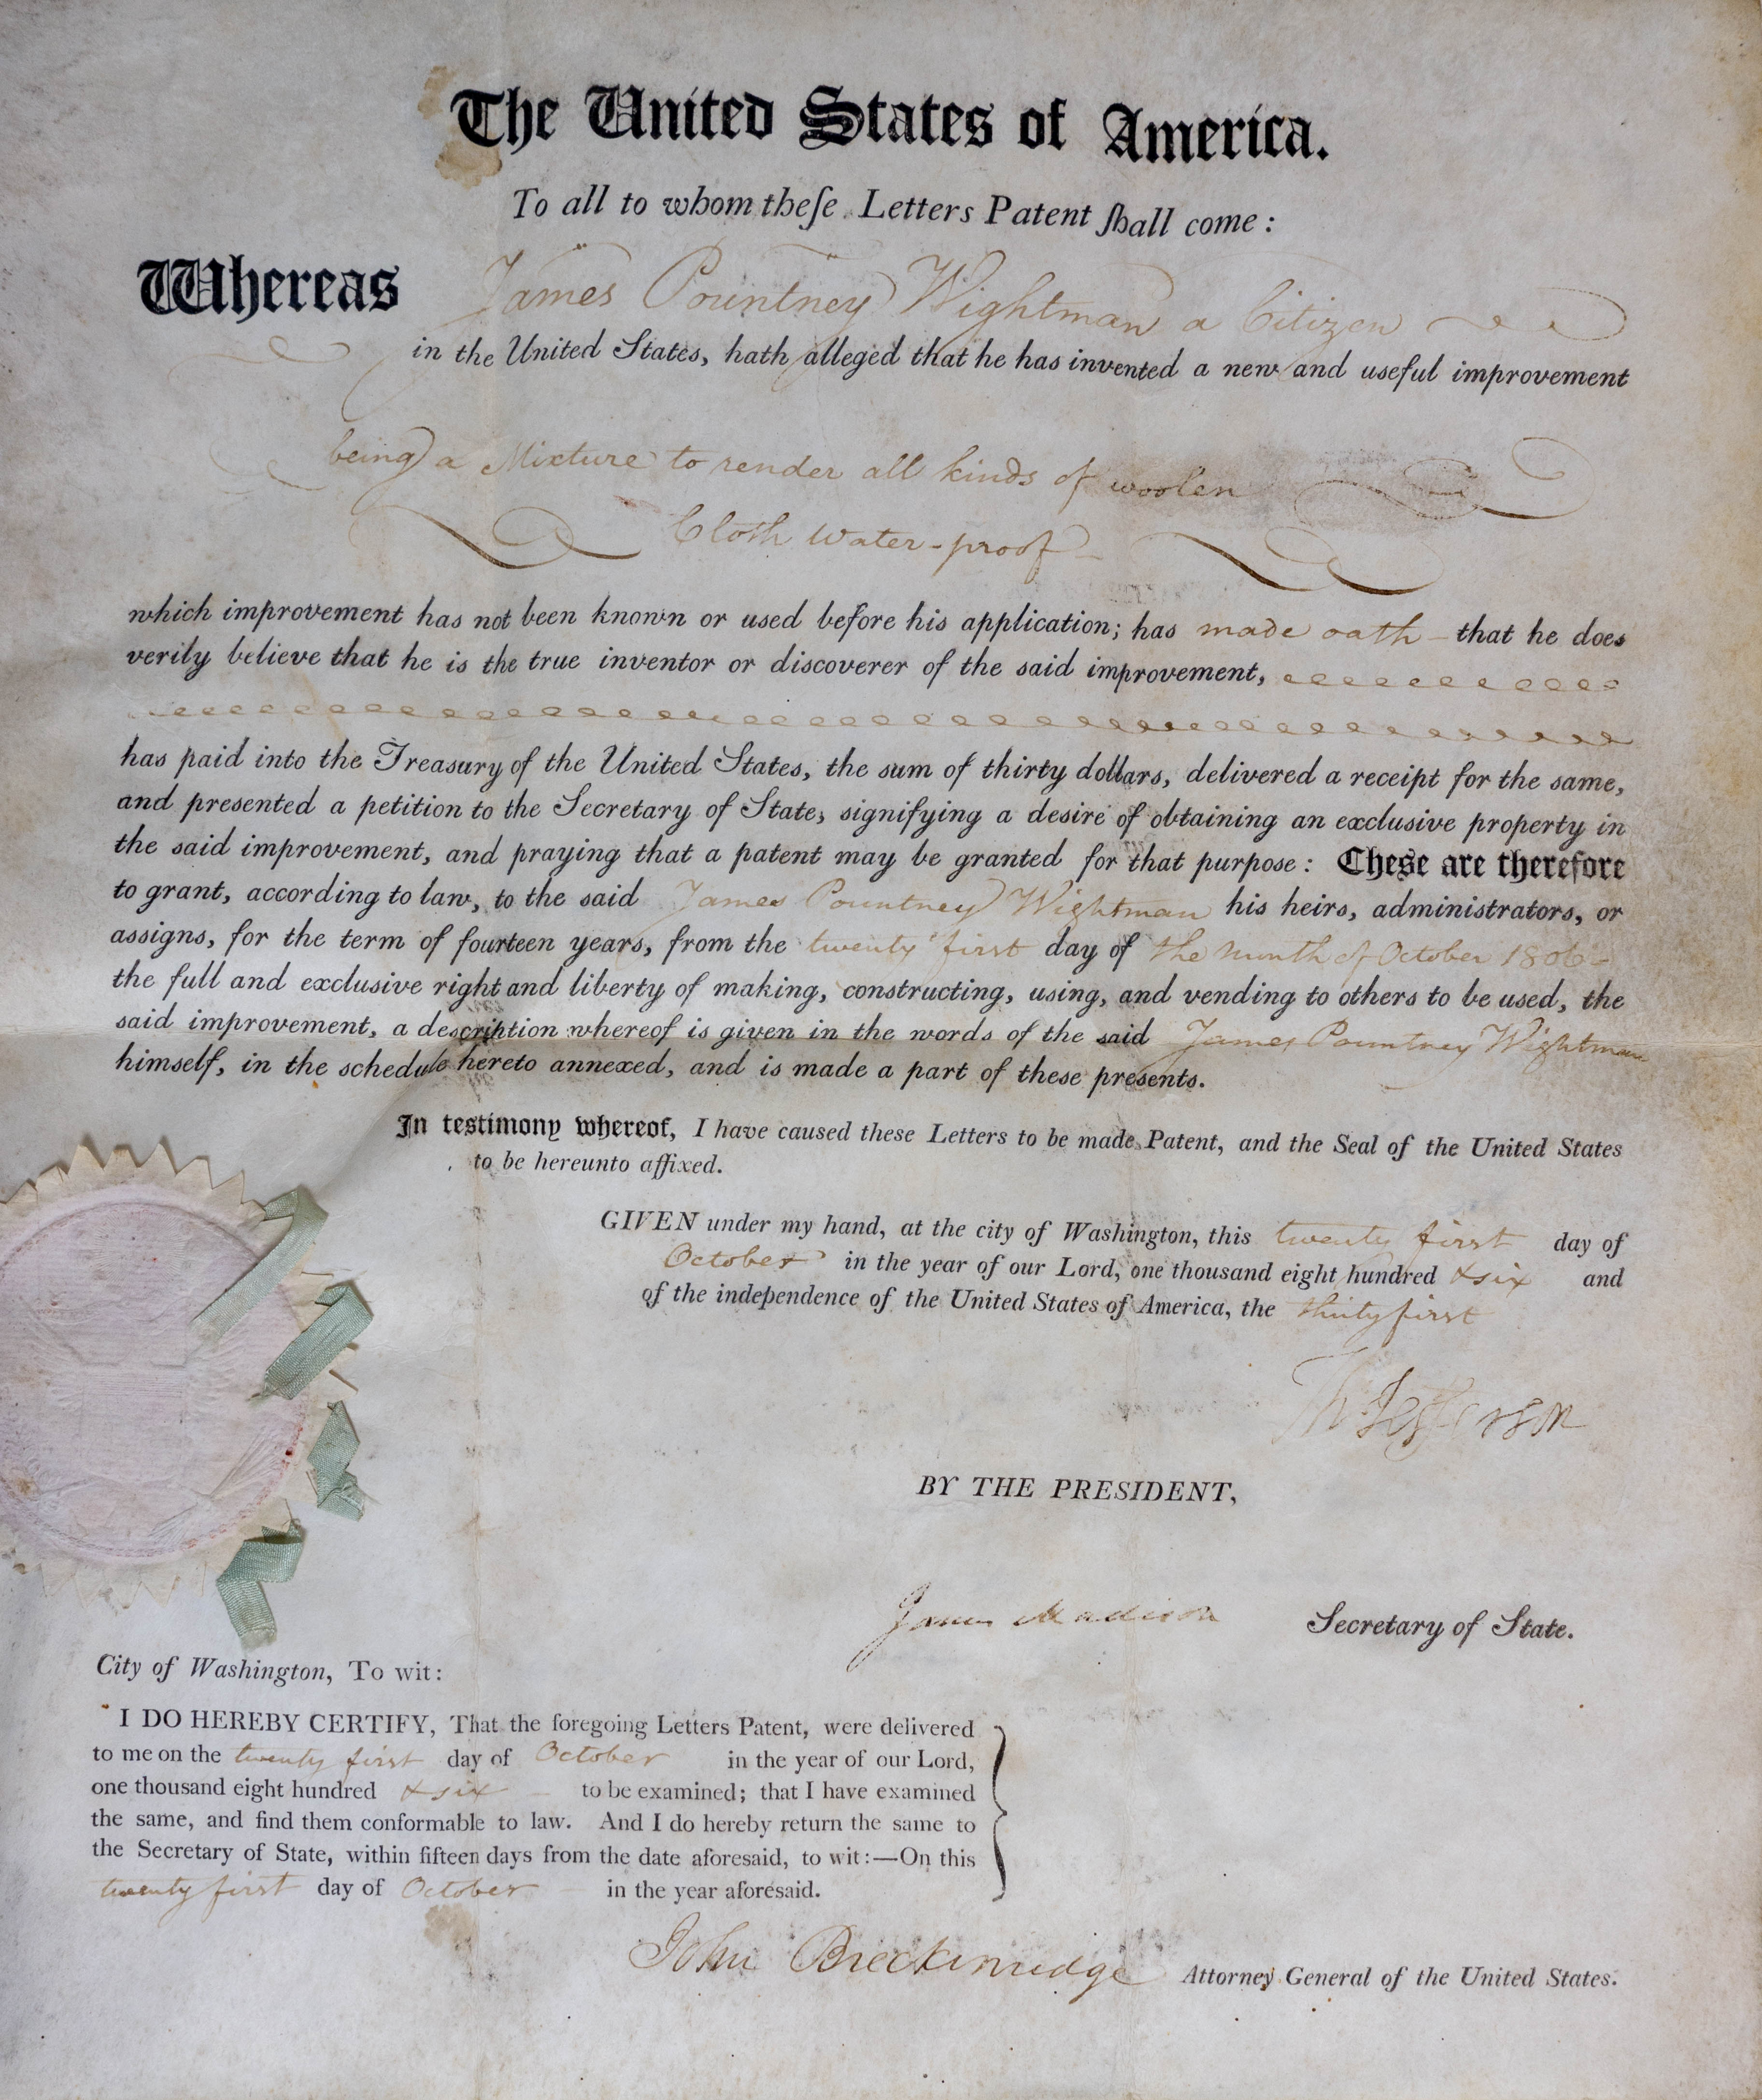 The United States of America.
To all to whom theſe Letters Patent ſhall come:
Whereas James Pountney Wightman a Citizen
in the United States, hath alleged that he has invented a new and useful improvement
being a Mixture to render all kinds of woolen
Cloth water-proof
which improvement has not been known or used before his application; has made oath - that he does
verily believe that he is the true inventor or discoverer of the said improvement,
has paid into the Treasury of the United States, the sum of thirty dollars, delivered a receipt for the same,
and presented a petition to the Secretary of State, signifying a desire of obtaining an exclusive property in
the said improvement, and praying that a patent may be granted for that purpose: These are therefore
to grant, according to law, to the said James Pountney Wightman his heirs, administrators, or
assigns, for the term of fourteen years, from the twenty first day of the month of October 1806-
the full and exclusive right and liberty of making, constructing, using, and vending to others to be used, the
said improvement, a description whereof is given in the words of the said James Pountney Wightman
himself, in the schedule hereto annexed, and is made a part of these presents.
In testimony whereof, I have caused these Letters to be made Patent, and the Seal of the United States
to be hereunto affixed.
GIVEN under my hand, at the city of Washington, this twenty first day of
October in the year of our Lord, one thousand eight hundred & six and
of the independence of the United States of America, the thirty first
Th: Jefferson
BY THE PRESIDENT,
James Madison Secretary of State.
City of Washington, To wit:
I DO HEREBY CERTIFY, That the foregoing Letters Patent, were delivered
to me on the twenty first day of October in the year of our Lord,
one thousand eight hundred & six - to be examined; that I have examined
the same, and find them conformable to law. And I do hereby return the same to
the Secretary of State, within fifteen days from the date aforesaid, to wit:—On this
twenty first day of October in the year aforesaid.
John Breckinridge Attorney General of the United States.